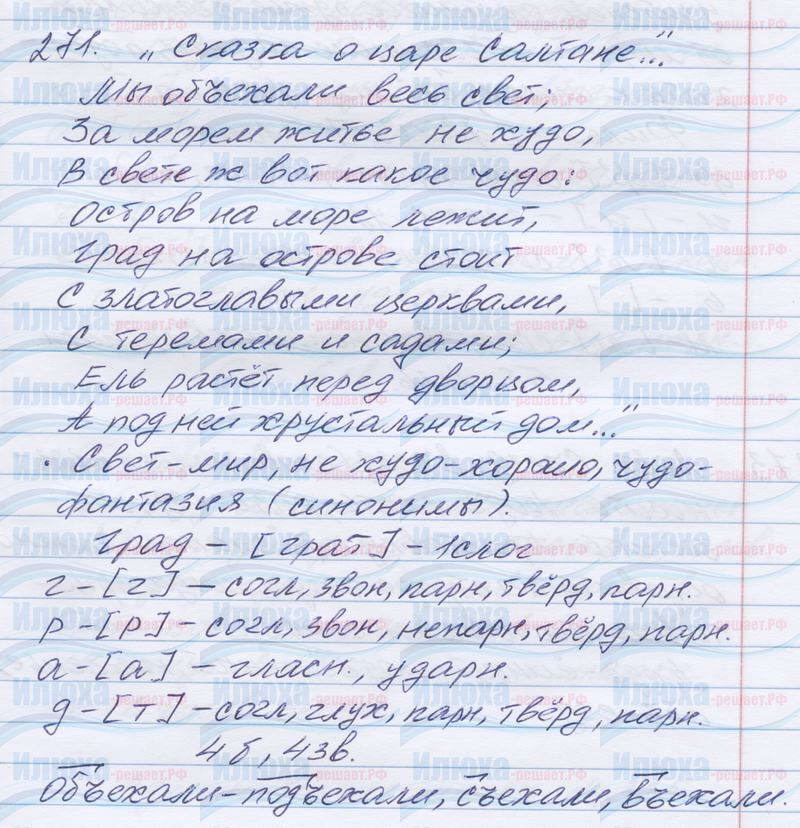 271. „Сказка о царе Салтане..."
Мы объехали весь свет;
За морем житье не худо,
В свете ж вот какое чудо:
Остров на море лежит,
Град на острове стоит
С златоглавыми церквами,
С теремами и садами;
Ель растёт перед дворцом,
А под ней хрустальный дом..."
. Свет-мир, не худо-хорошо, чудо-
фантазия (синонимы).
Град - [грат] - 1слог
г - [г] - согл, звон, парн, твёрд, парн.
р - [р] - согл, звон, непарн, твёрд, парн.
а - [а] - гласн., ударн.
д - [т] - согл, глух, парн, твёрд, парн.
4 б, 4 зв.
Объехали - подъехали, съехали, въехали.
Илюха-решает.РФ